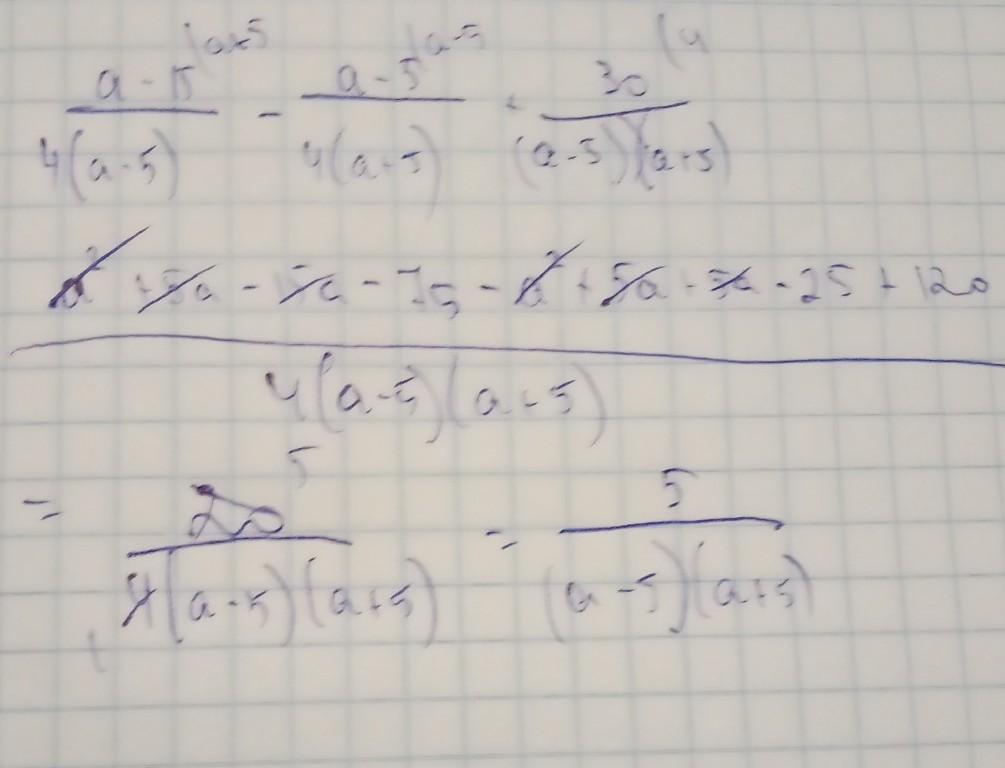 a - 15 (a+5 / 4(a - 5) - a - 5 (a-5 / 4(a + 5) + 30 (4 / (a - 5)(a + 5)
a² + 5a - 15a - 75 - a² + 5a + 5a - 25 + 120
4(a - 5)(a + 5)
= 20 5 / 4(a - 5)(a + 5) = 5 / (a - 5)(a + 5)